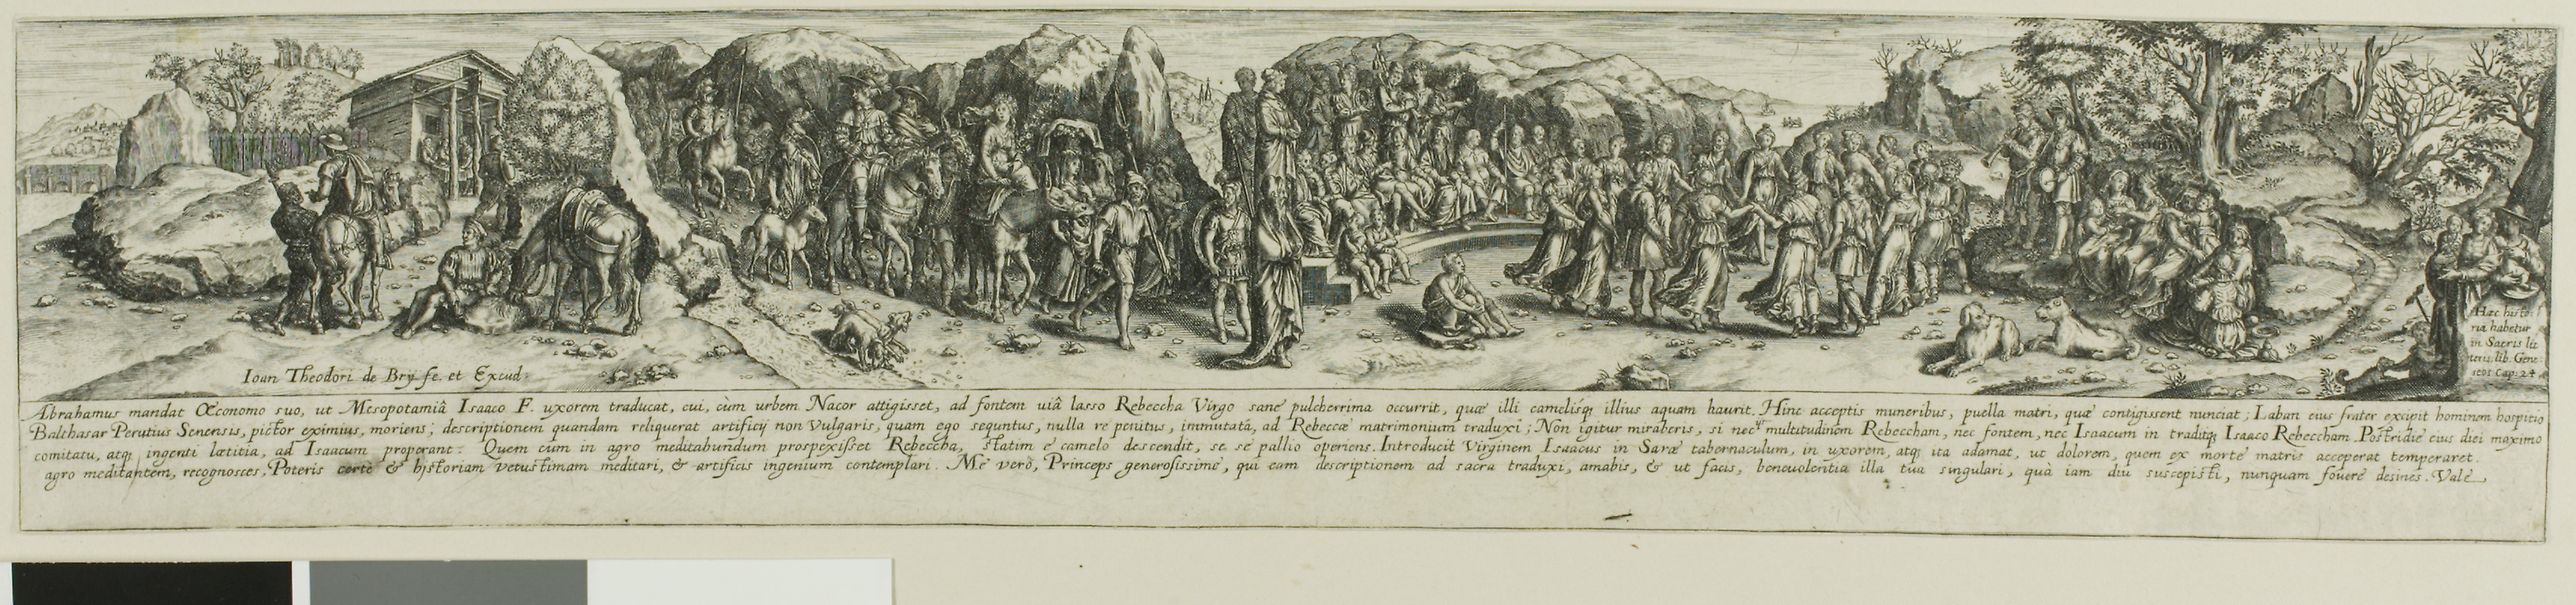 Ioan Theodori de Bry fe. et Excud.
Hæc histo
ria habetur
in Sacris lit
teris. lib. Gene
seos Cap: 24
Abrahamus mandat Œconomo suo, ut Mesopotamiâ Isaaco F. uxorem traducat, cui, cùm urbem Nacor attigisset, ad fontem uiâ lasso Rebeccha Virgo sanè pulcherrima occurrit, quæ illi camelisq; illius aquam haurit. Hinc acceptis muneribus, puella matri, quæ contigissent nunciat; Laban eius frater excipit hominem hospitio
Balthasar Perutius Senensis, pictor eximius, moriens, descriptionem quandam reliquerat artificij non Vulgaris, quam ego sequutus, nulla re penitus, immutatâ, ad Rebeccæ matrimonium traduxi; Non igitur miraberis, si nec multitudinem Rebeccham, nec fontem, nec Isaacum in traditq; Isaaco Rebeccham. Postridie eius diei maximo
comitatu, atq; ingenti lætitia, ad Isaacum properant. Quem cùm in agro meditabundum prospexisset Rebeccha, statim è camelo descendit, se se pallio operiens. Introducit Virginem Isaacus in Saræ tabernaculum, in uxorem, atq; ita adamat, ut dolorem, quem ex morte matris acceperat temperaret.
agro meditantem, recognosces, Poteris certè & historiam vetustimam meditari, & artificis ingenium contemplari. Me verò, Princeps generosissime, qui eam descriptionem ad sacra traduxi, amabis, & ut facis, beneuolentia illa tua singulari, quâ iam diu suscepisti, nunquam fouere desines. Vale